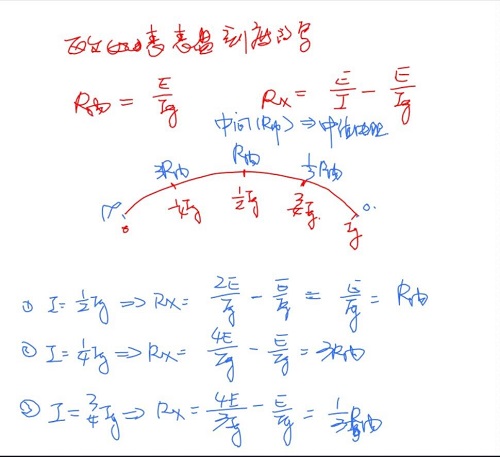 欧姆表表盘刻度的写
R内 = E/Ig  Rx = E/I - E/Ig
中间(R内) ⇒ 中值电阻
3R内 R内 1/3R内
∞ 0
0 1/4Ig 1/2Ig 3/4Ig Ig
① I = 1/2Ig ⇒ Rx = 2E/Ig - E/Ig = E/Ig = R内
② I = 1/4Ig ⇒ Rx = 4E/Ig - E/Ig = 3R内
③ I = 3/4Ig ⇒ Rx = 4E/3Ig - E/Ig = 1/3R内